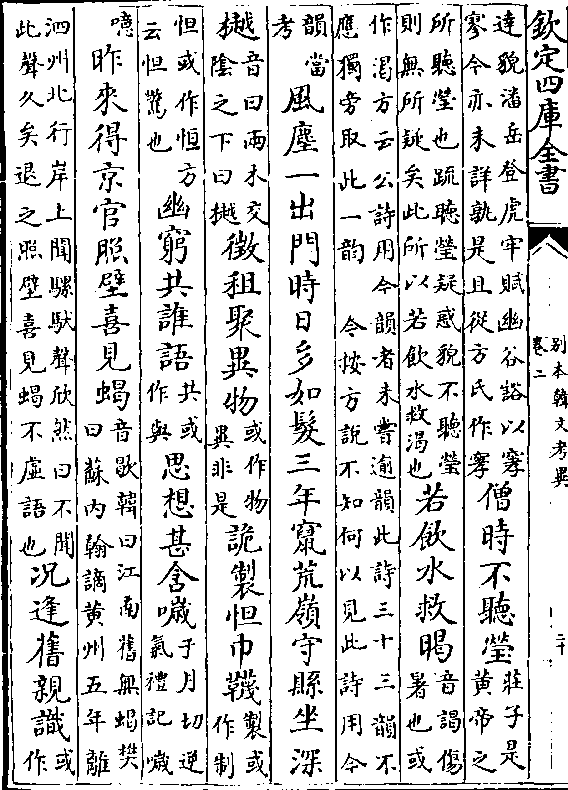 欽定四庫全書
別本韓文考異
卷二
二十
達貌潘岳登虎牢賦幽谷豁以窙
寥今亦未詳孰是且從方氏作窙
僧時不聽瑩
莊子是
黃帝之
所聽瑩也疏聽瑩疑惑貌不聽瑩
則無所疑矣此所以若飲水救渴也
若飲水救暍
音謁傷
暑也或
作渴方云公詩用今韻者未嘗逾韻此詩三十三韻不
應獨旁取此一韵 今按方說不知何以見此詩用今
韻當
考
風塵一出門時日多如髮三年竄荒嶺守縣坐深
樾
音曰兩木交
陰之下曰樾
徵租聚異物
或作物
異非是
詭製怛巾韈
製或
作制
怛或作恒方
云怛驚也
幽窮共誰語
共或
作與
思想甚含噦
子月切逆
氣禮記噦
噫
昨來得京官照壁喜見蝎
音歇韓曰江南舊無蝎樊
曰蘇內翰謫黃州五年離
泗州北行岸上聞騾馱聲欣然曰不聞
此聲久矣退之照壁喜見蝎不虛語也
況逢舊親識
或
作